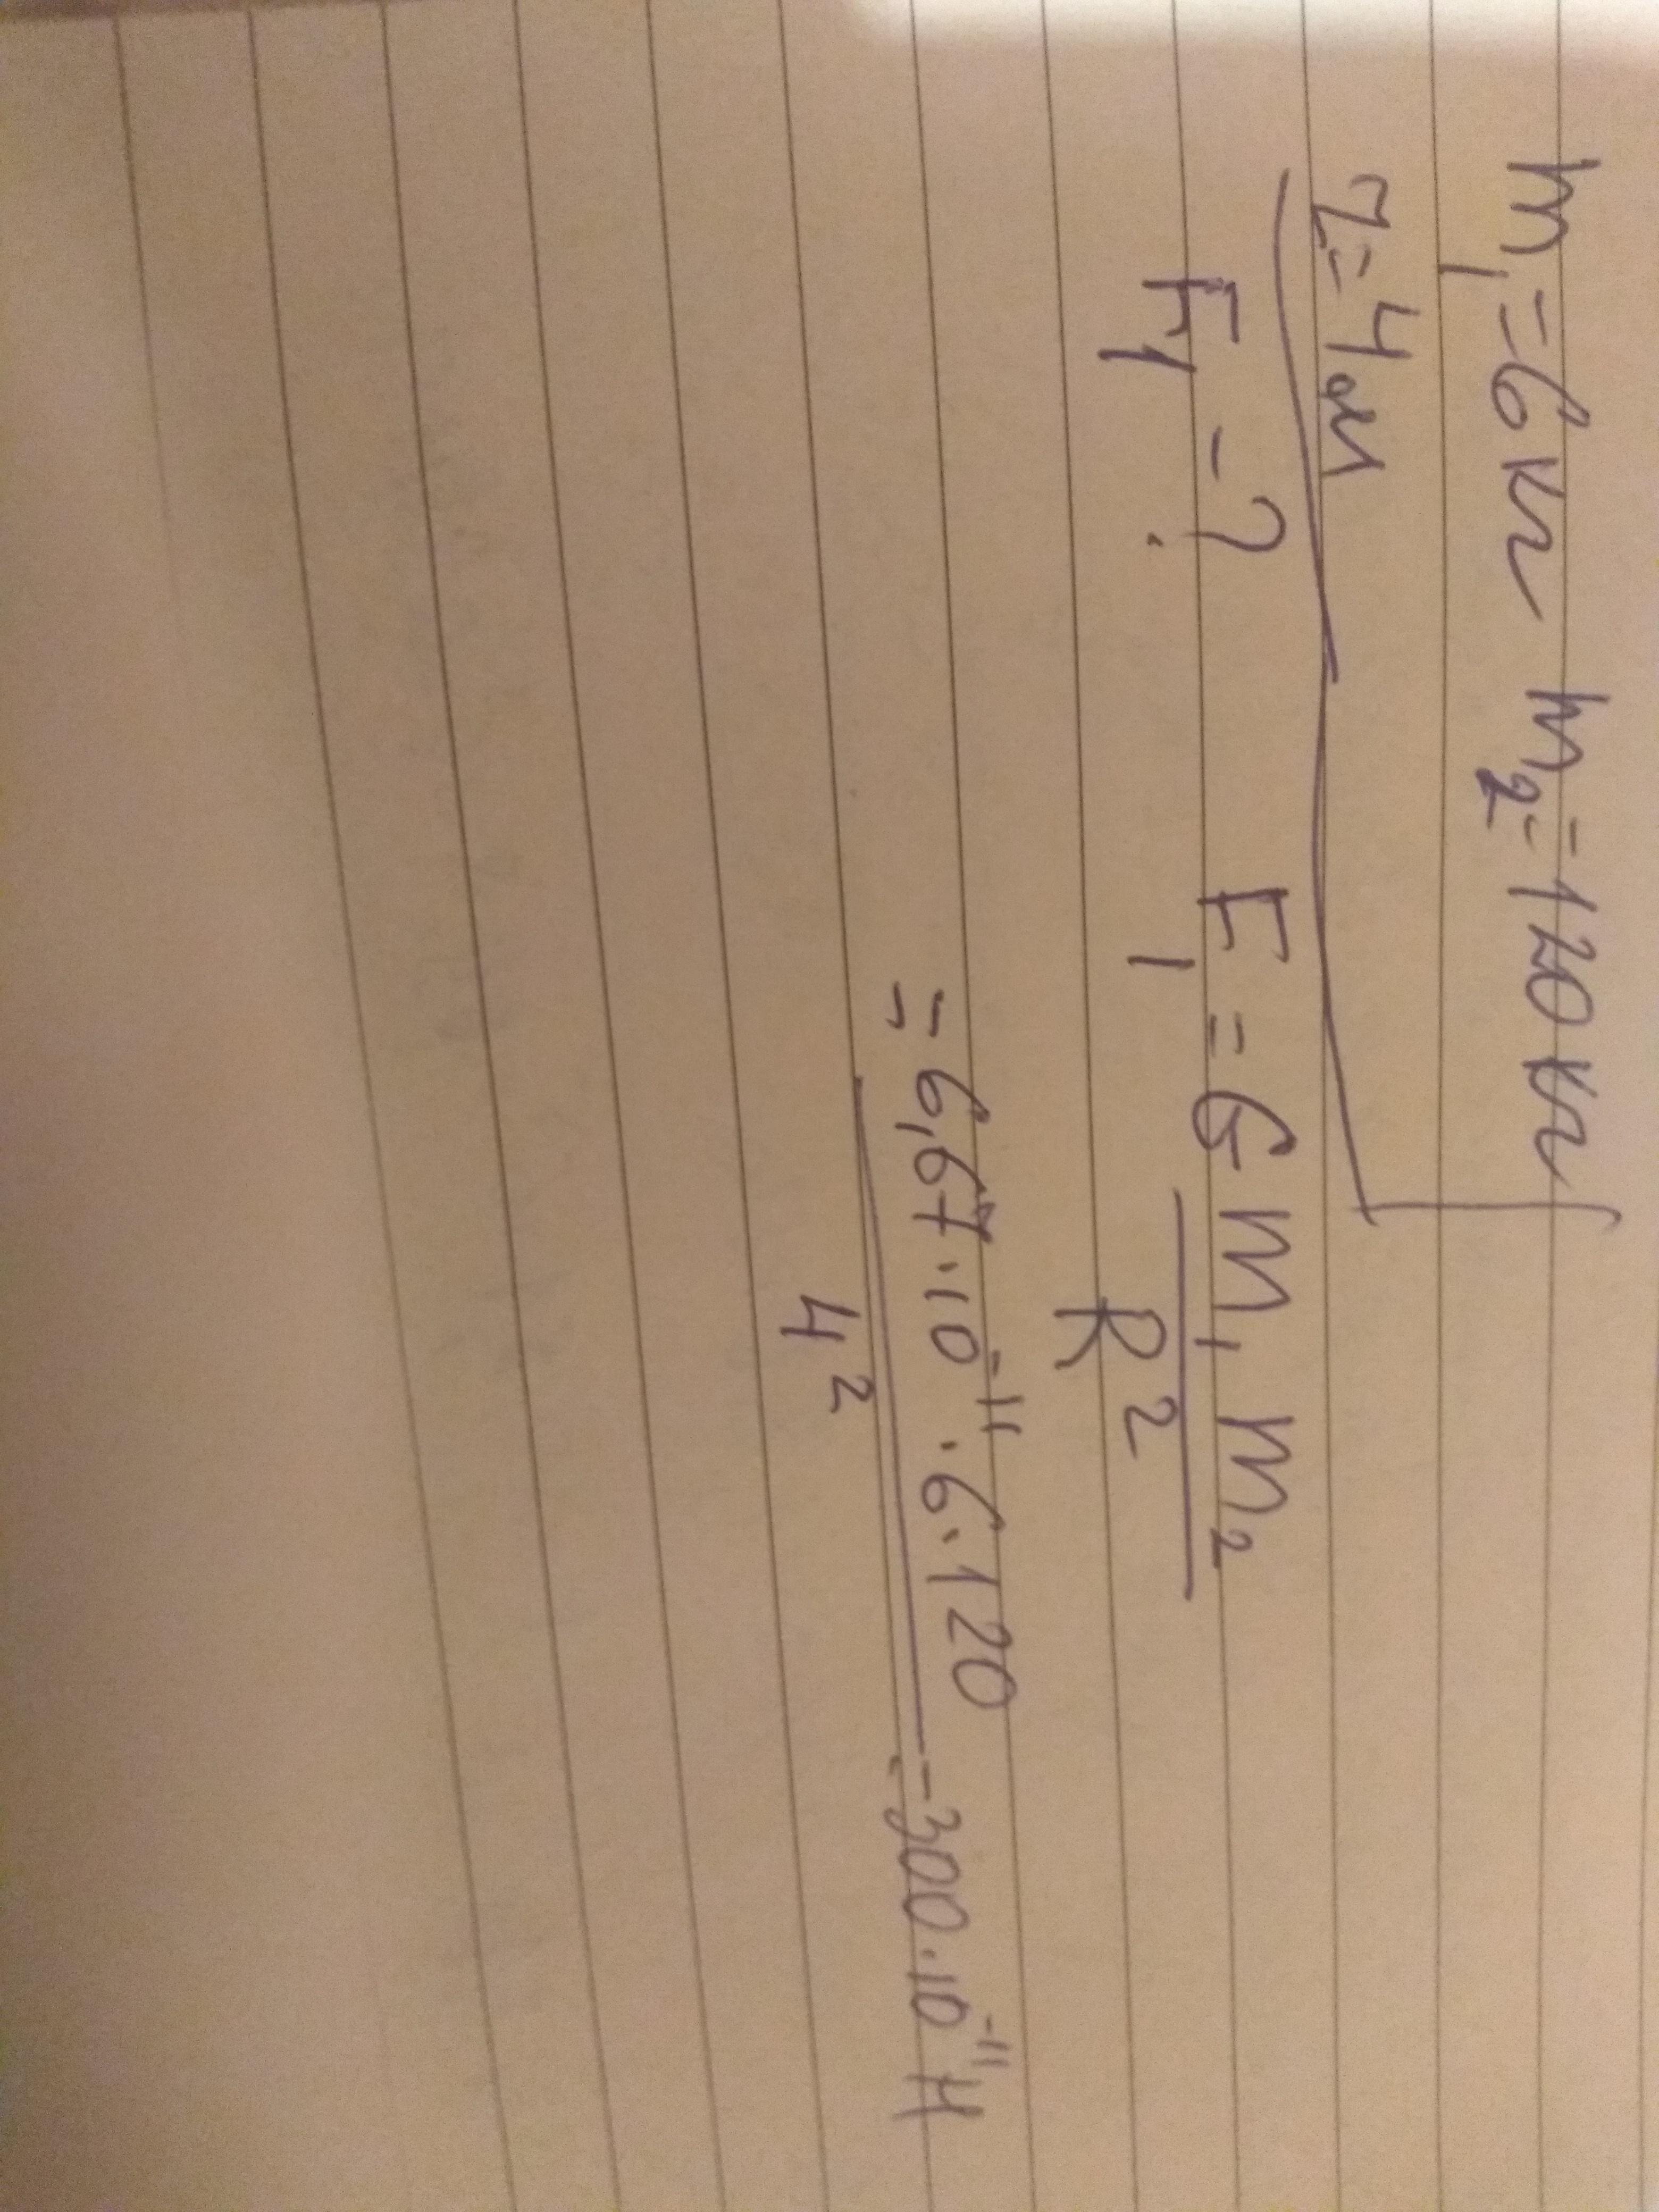 m₁=6кг m₂=120кг
r=4м
F₁-?
F₁=G m₁ m₂
R²
= 6,67·10⁻¹¹·6·120 = 300·10⁻¹¹Н
4²